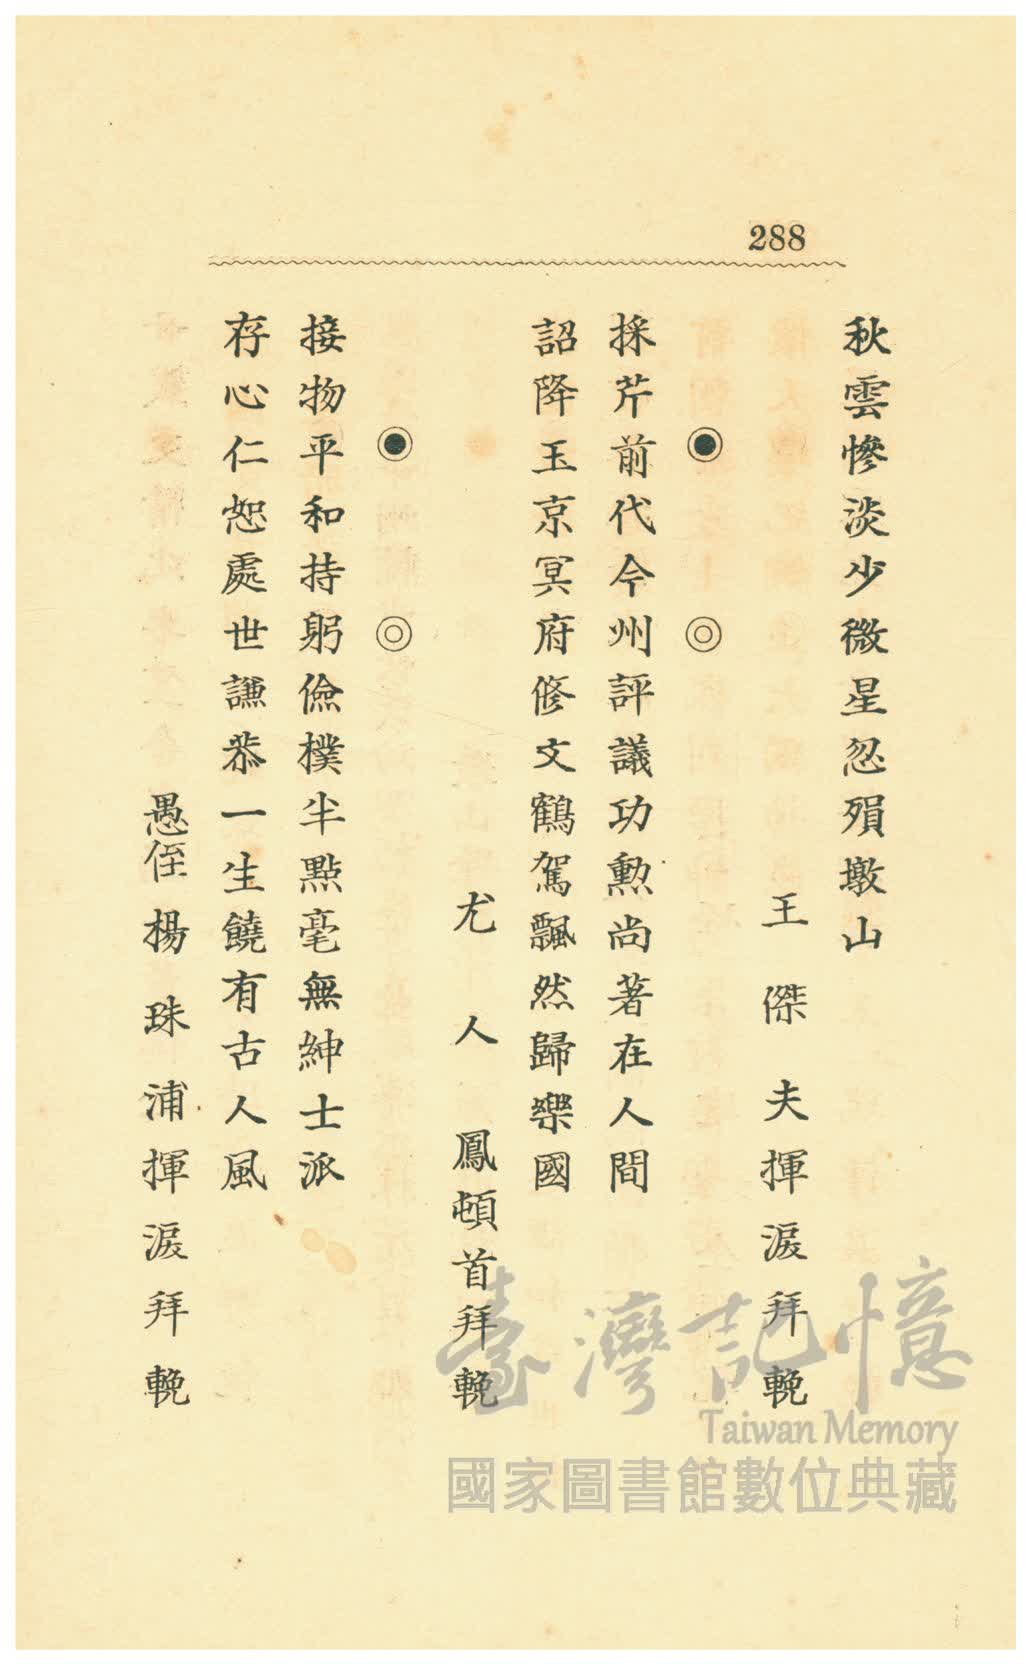 288
秋雲慘淡少微星忽殞墩山
王傑夫揮淚拜輓
◉ ◎
採芹前代今州評議功勳尚著在人間
詔降玉京冥府修文鶴駕飄然歸樂國
尤人鳳頓首拜輓
◉ ◎
接物平和持躬儉樸半點毫無紳士派
存心仁恕處世謙恭一生饒有古人風
愚侄楊珠浦揮淚拜輓
臺灣記憶
Taiwan Memory
國家圖書館數位典藏